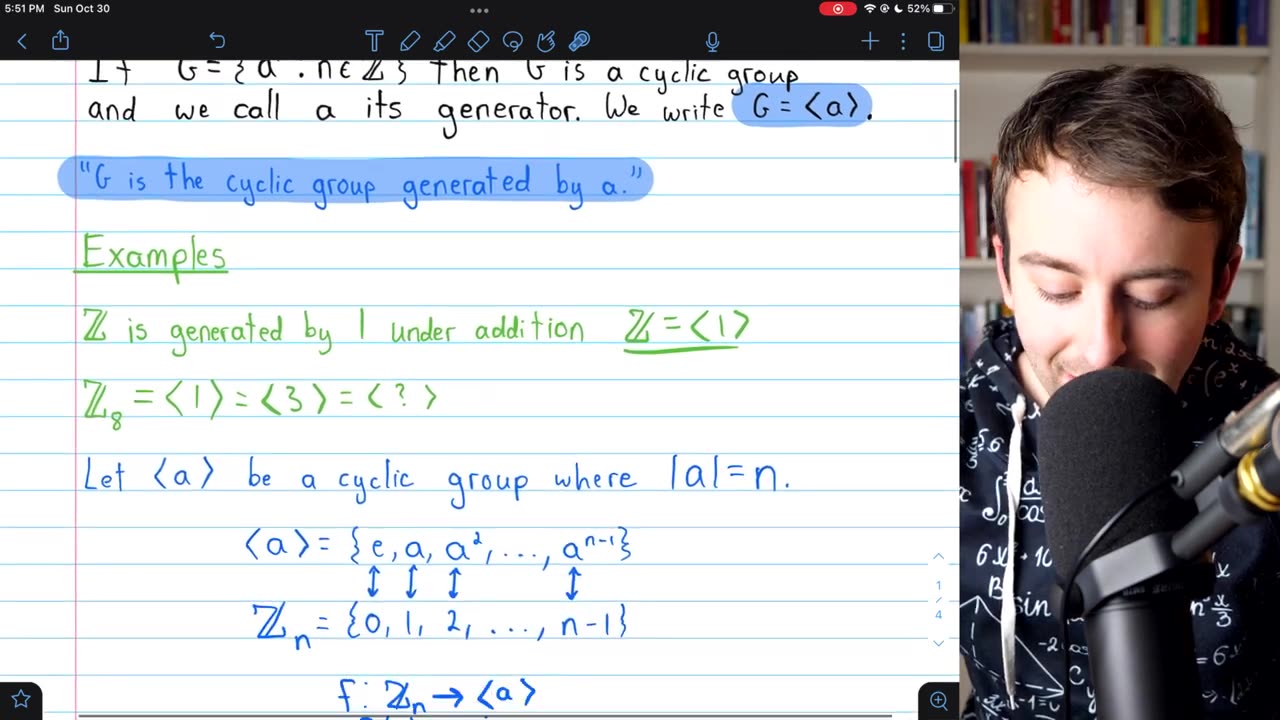 5:51 PM Sun Oct 30
52%
If G = {a . n ∈ ℤ} Then G is a cyclic group
and we call a its generator. We write G = ⟨a⟩.
"G is the cyclic group generated by a."
Examples
ℤ is generated by 1 under addition ℤ = ⟨1⟩
ℤ₈ = ⟨1⟩ = ⟨3⟩ = ⟨?⟩
Let ⟨a⟩ be a cyclic group where |a| = n.
⟨a⟩ = {e, a, a², ..., aⁿ⁻¹}
ℤₙ = {0, 1, 2, ..., n-1}
f: ℤₙ → ⟨a⟩
1
/
4
6x + 10
sin